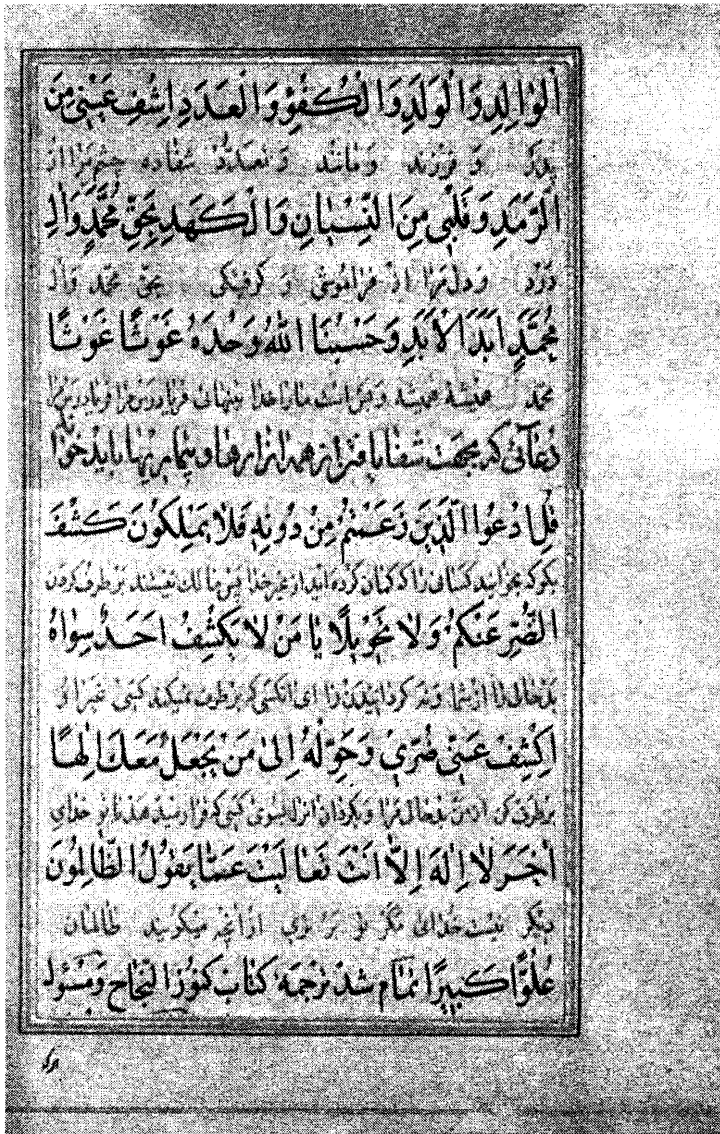 اَلْوالِدِ وَالْوَلَدِ وَالْكُفْوِ وَالْعَدَدِ اِشْفِ عَيْنى مِنَ
پدر و فرزند و مانند و تعدد شفا ده چشم مرا از
الرَّمَدِ وَقَلْبى مِنَ النِّسْيانِ وَالْكَهَدِ بِحَقِّ مُحَمَّدٍ وَالِ
درد و دل مرا از فراموشى و گرفتگى بحق محمد وال
مُحَمَّدٍ اَبَدَ الْاَبَدِ وَحَسْبُنَا اللهُ وَحْدَهُ غَوْثًا غَوْثًا
محمد هميشه هميشه و بس است ما را خدا بتنهائى فرياد رس مرا فرياد رس مرا
دعائى كه بجهت شفا يافتن از همه ازارها و بيماريها بايد خواند
قُلِ ادْعُوا الَّذينَ زَعَمْتُمْ مِنْ دُونِهِ فَلا يَمْلِكُونَ كَشْفَ
بگو كه بخوانيد كسانى را كه گمان كرده‌ايد از غير خدا پس مالك نيستند برطرف كردن
الضُّرِّ عَنْكُمْ وَلا تَحْويلًا يا مَنْ لا يَكْشِفُ اَحَدٌ سِواهُ
بدحالى را از شما و نه گردانيدن را اى انكسى كه برطرف نميكند كسى غير او
اِكْشِفْ عَنّى ضُرّى وَحَوِّلْهُ اِلى مَنْ يَجْعَلُ مَعَكَ اِلهًا
برطرف كن از من بدحالى مرا و بگردان انرا بسوى كسى كه قرار ميدهد با تو خداى
اخَرَ لا اِلهَ اِلّا اَنْتَ تَعالَيْتَ عَمّا يَقُولُ الظّالِمُونَ
ديگر نيست خداى مگر تو برترى از انچه ميگويند ظالمان
عُلُوًّا كَبيرًا تمام شد ترجمه كتاب كنوز النجاح ومسئول